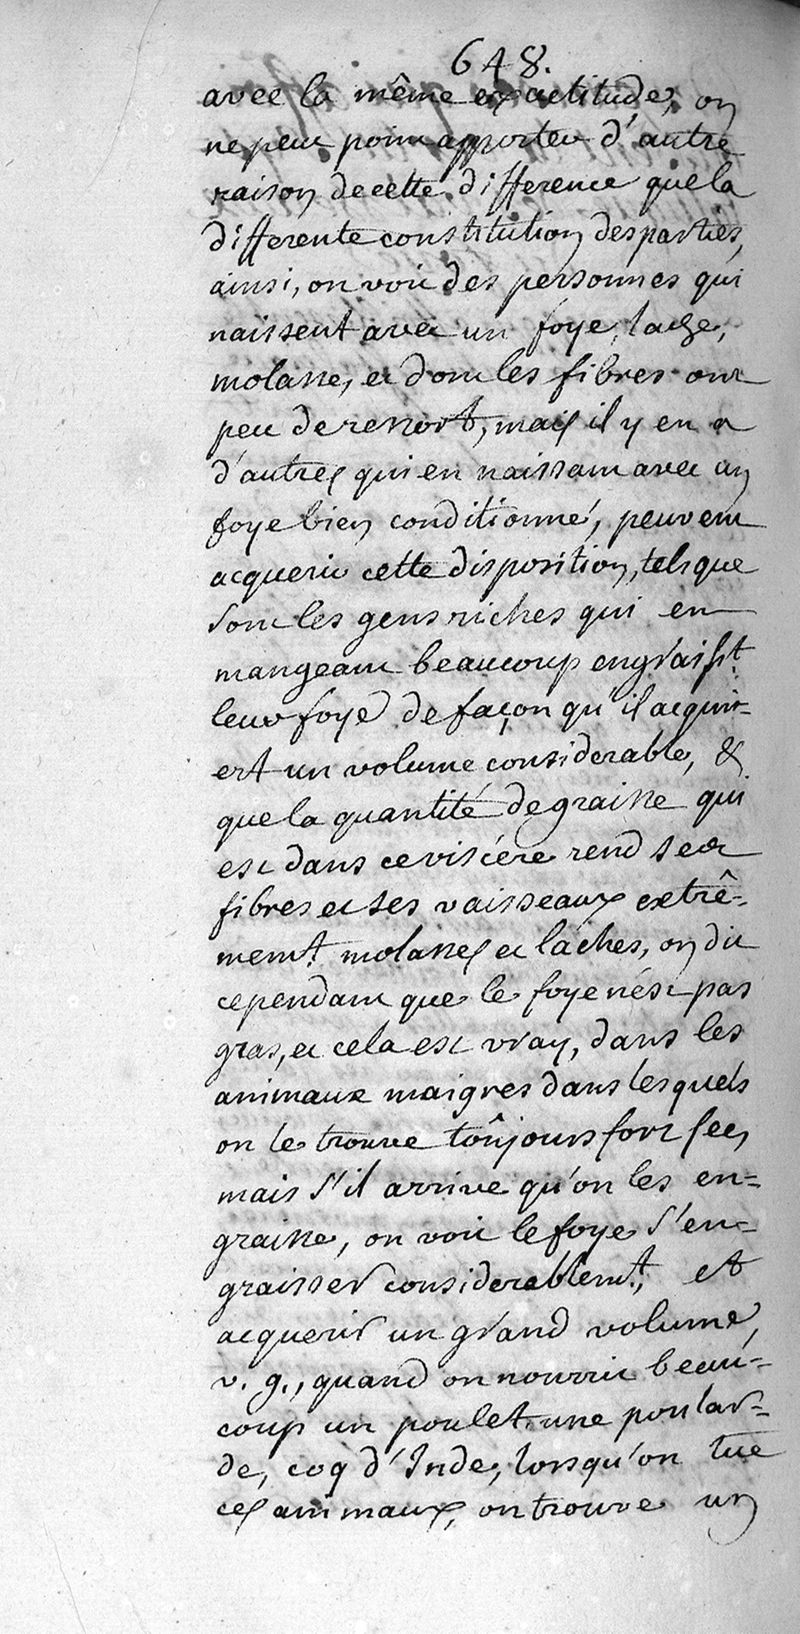 648.
avec la même exactitude, on
ne peut point apporter d'autre
raison de cette difference que la
differente constitution des parties,
ainsi, on voit des personnes qui
naissent avec un foye, lache,
molasse, et dont les fibres ont
peu de ressort, mais il y en a
d'autres qui en naissant avec un
foye bien conditionné, peuvent
acquerir cette disposition, tels que
sont les gens riches qui en
mangeant beaucoup engraisst.
leur foye de façon qu'il acqui-
ert un volume considerable, &
que la quantité de graisse qui
est dans ce viscére rend ses
fibres et ses vaisseaux extrê-
ment. molasses et lâches, on dit
cependant que le foye n'est pas
gras, et cela est vray, dans les
animaux maigres dans lesquels
on le trouve toûjours fort sec,
mais s'il arrive qu'on les en=
graisse, on voit le foye s'en=
graisser considerablemt., et
acquerir un grand volume,
v. g., quand on nourrit beau=
coup un poulet, une poular=
de, coq d'Inde, lorsqu'on tue
ces animaux, on trouve un